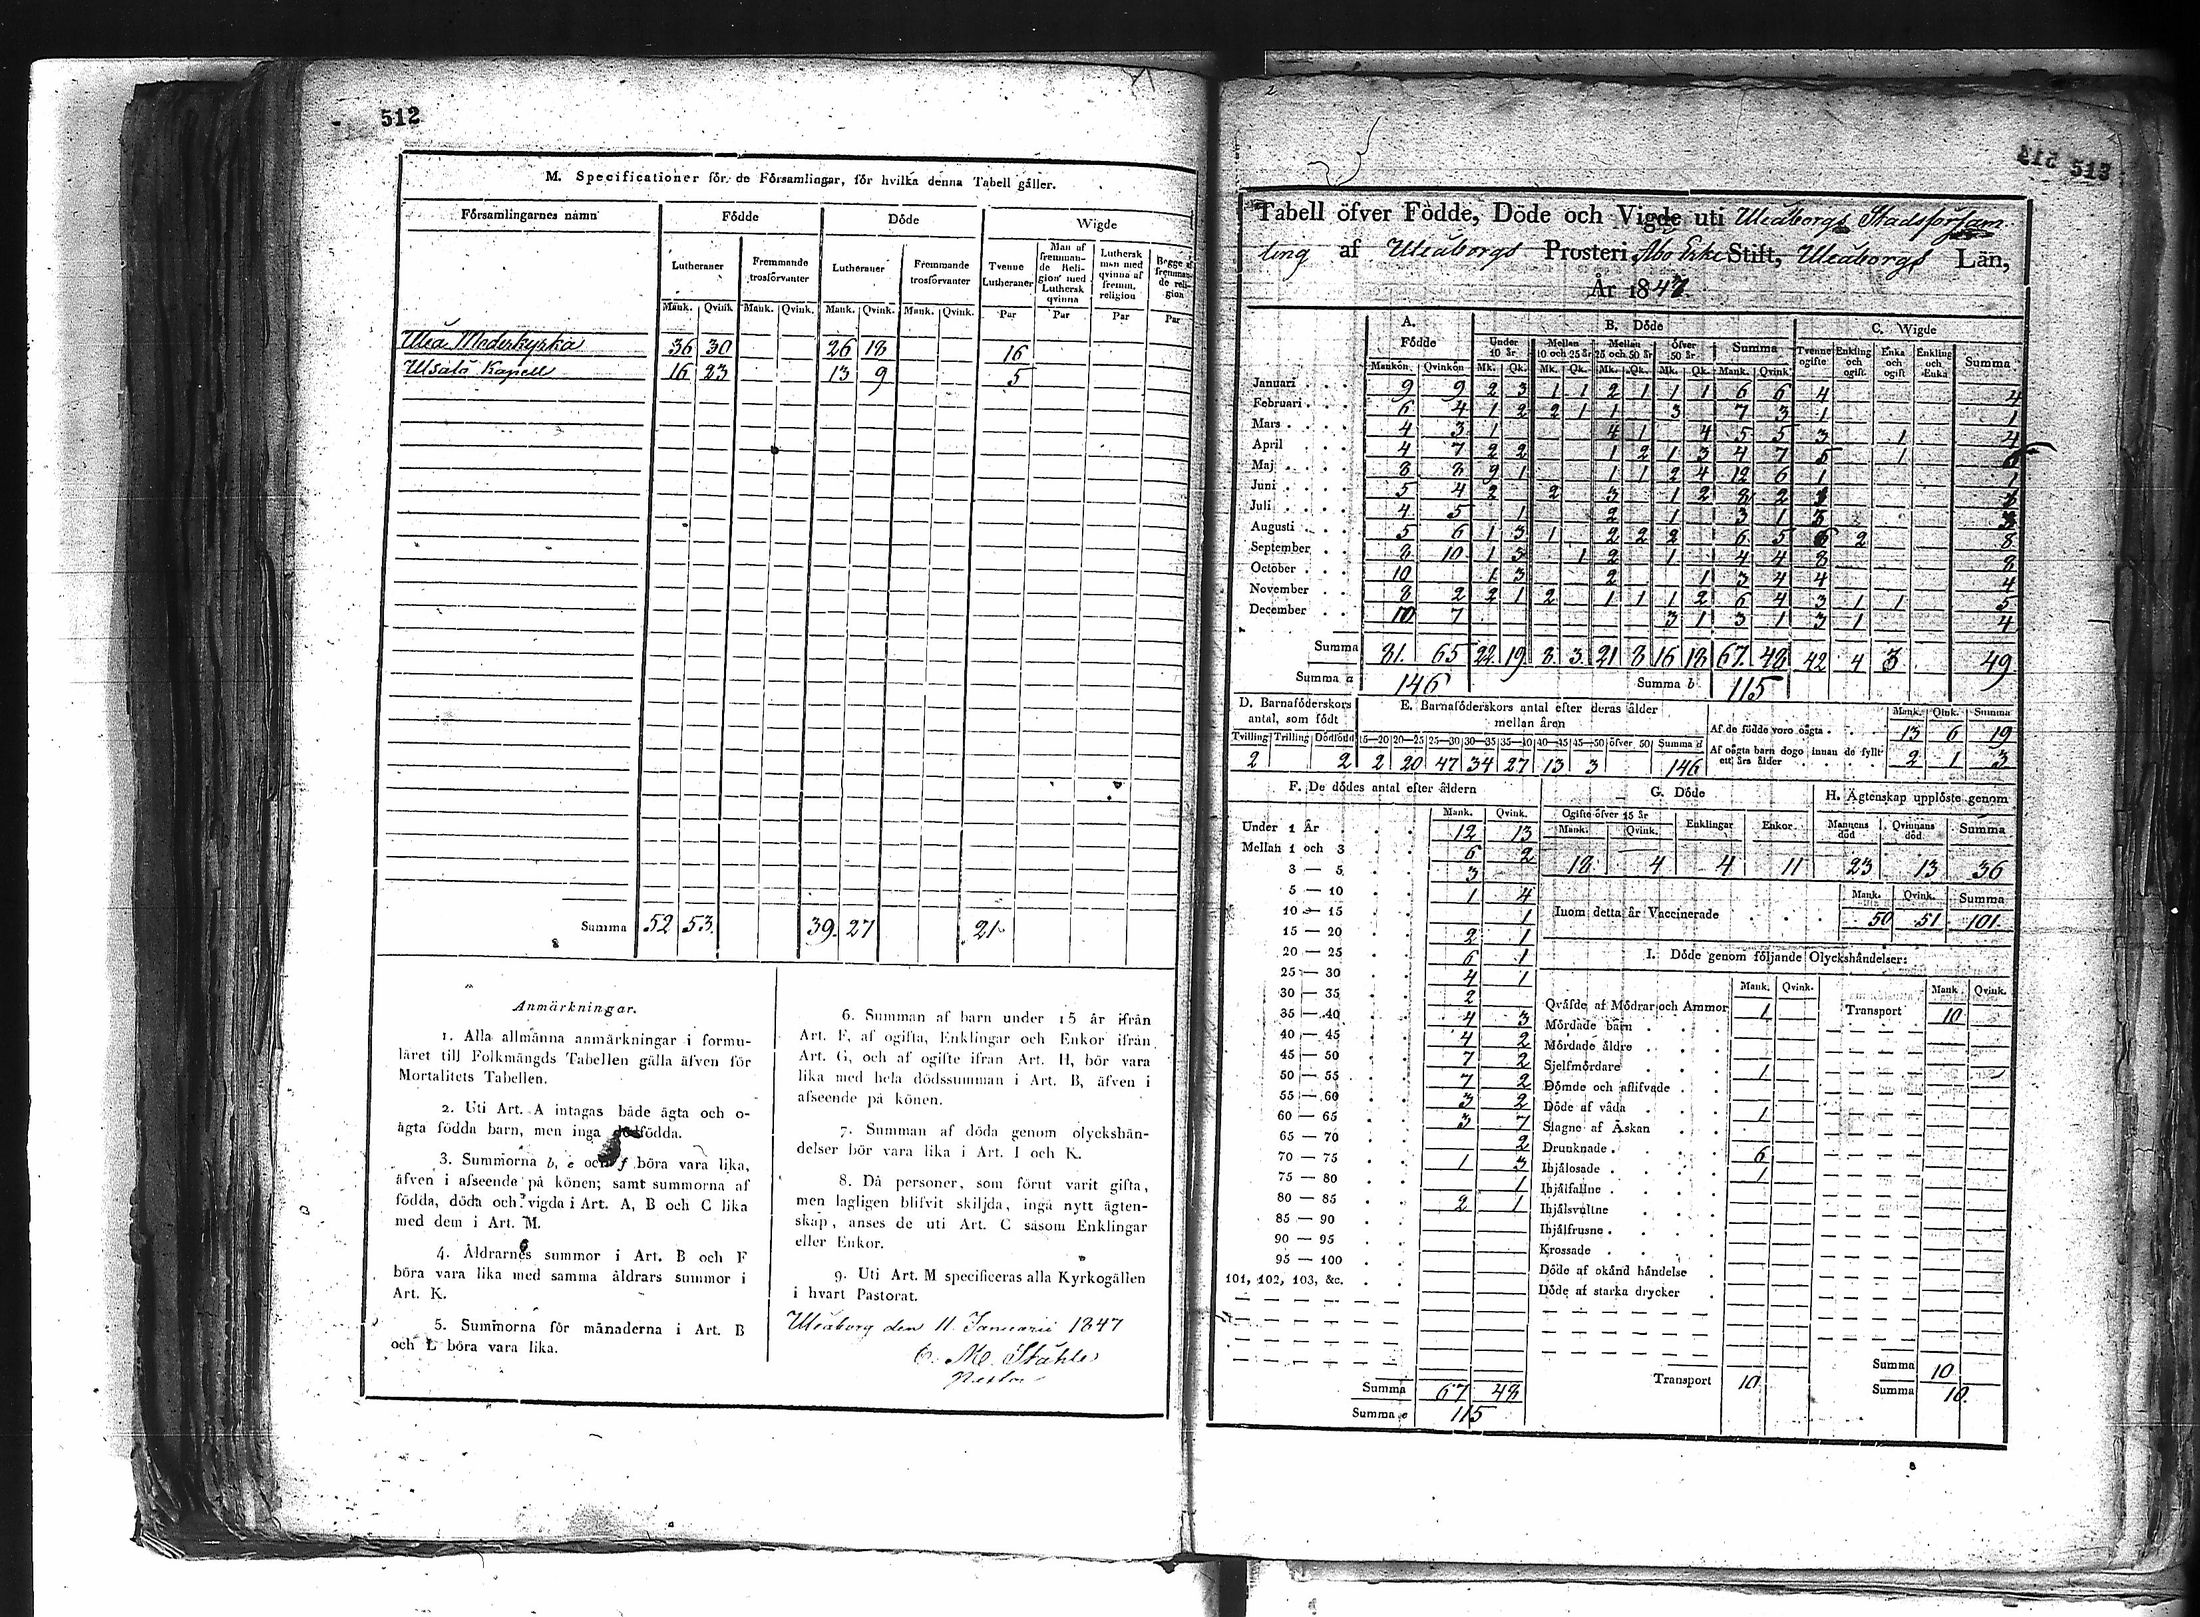 512
M. Specificationer för de Församlingar, för hvilka denna Tabell gäller.
Församlingarnes namn Födde Döde Wigde
Lutheraner Fremmande trosförvanter Lutheraner Fremmande trosförvanter Tvenne Lutheraner Man af fremmande Religion med Luthersk qvinna Luthersk man med qvinna af fremm. religion Begge af fremmande religion
Mank. Qvink Mank. Qvink. Mank. Qvink. Mank. Qvink. Par Par Par Par
Uleå Moderkyrka 36 30 26 18 16
Kapell 16 23 13 9 5
Summa 52 53. 39. 27 21
Anmärkningar.
1. Alla allmänna anmärkningar i formu-
läret till Folkmängds Tabellen gälla äfven för
Mortalitets Tabellen.
2. Uti Art. A intagas både ägta och o-
ägta födda barn, men inga dödfödda.
3. Summorna b, e och f böra vara lika,
äfven i afseende på könen; samt summorna af
födda, döda och vigda i Art. A, B och C lika
med dem i Art. M.
4. Åldrarnes summor i Art. B och F
böra vara lika med samma åldrars summor i
Art. K.
5. Summorna för månaderna i Art. B
och L böra vara lika.
6. Summan af barn under 15 år ifrån
Art. F, af ogifta, Enklingar och Enkor ifrån
Art. G, och af ogifte ifran Art. H, bör vara
lika med hela dödssumman i Art. B, äfven i
afseende på könen.
7. Summan af döda genom olyckshän-
delser bör vara lika i Art. I och K.
8. Då personer, som förut varit gifta,
men lagligen blifvit skiljda, ingå nytt ägten-
skap, anses de uti Art. C såsom Enklingar
eller Enkor.
9. Uti Art. M specificeras alla Kyrkogällen
i hvart Pastorat.
Uleåborg den 11 Januarii 1847
C. M. Ståhle
Pastor
513
Tabell öfver Födde, Döde och Vigde uti Uleåborgs Stadsförsam
ling af Uleåborgs Prosteri Åbo Erke Stift, Uleåborgs Län,
År 1847.
A. Födde B. Döde C. Wigde
Under 10 år Mellan 10 och 25 år Mellan 25 och 50 år Öfver 50 år Summa Tvenne ogifte Enkling och ogift. Enka och ogift Enkling och Enka Summa
Mankön Qvinkön Mk. Qk. Mk. Qk. Mk. Qk. Mk. Qk. Mank. Qvink
Januari 9 9 2 3 1 1 2 1 1 1 6 6 4 4
Februari 6 4 1 2 2 1 1 3 7 3 1 1
Mars 4 3 1 4 1 4 5 5 3 1 4
April 4 7 2 2 1 2 1 3 4 7 5 1
Maj 8 8 9 1 1 1 2 4 12 6 1 1
Juni 5 4 2 2 3 1 2 8 2
Juli 4 5 1 2 1 3 1 3 3
Augusti 5 6 1 3 1 2 2 2 6 5 6 2 8
September 8 10 1 3 1 2 1 4 4 8 8
October 10 1 3 2 1 3 4 4 4
November 8 2 2 1 2 1 1 1 2 6 4 3 1 1 5
December 10 7 3 1 3 1 3 1 4
Summa 81. 65 22. 19. 8. 3. 21 8 16 18 67. 48 42 4 3 49.
Summa a 146 Summa b 115
D. Barnaföderskors antal, som födt
Tvilling Trilling Dödfödd
2 2
E. Barnaföderskors antal efter deras ålder mellan åren
15—20 20—25 25—30 30—35 35—40 40—45 45—50 öfver 50 Summa d
2 20 47 34 27 13 3 146
Mank. Qink. Summa
Af de födde voro oägta 13 6 19
Af oägta barn dogo innan de fyllt ett års ålder 2 1 3
F. De dödes antal efter åldern
Mank. Qvink.
Under 1 År 12 13
Mellan 1 och 3 6 2
3 — 5 3
5 — 10 1 4
10 — 15 1
15 — 20 2 1
20 — 25 6 1
25 — 30 4 1
30 — 35 2
35 — 40 4 3
40 — 45 4 2
45 — 50 7 2
50 — 55 7 2
55 — 60 3 2
60 — 65 3 7
65 — 70 2
70 — 75 1 3
75 — 80 1
80 — 85 2 1
85 — 90
90 — 95
95 — 100
101, 102, 103, &c.
Summa 67 48
Summa e 115
G. Döde
Ogifte öfver 15 år Enklingar Enkor
Mank. Qvink.
18 4 4 11
H. Ägtenskap upplöste genom
Mannens död Qvinnans död. Summa
23 13 36
Mank. Qvink. Summa
Inom detta år Vaccinerade 50 51 101.
I. Döde genom följande Olyckshändelser:
Mank. Qvink. Mank. Qvink.
Qväfde af Mödrar och Ammor 1 Transport 10
Mördade barn
Mördade äldre
Sjelfmördare 1
Dömde och aflifvade
Döde af våda 1
Slagne af Åskan
Drunknade 6
Ihjälosade 1
Ihjälfallne
Ihjälsvultne
Ihjälfrusne
Krossade
Döde af okänd händelse
Döde af starka drycker
Transport 10
Summa 10
Summa 10.